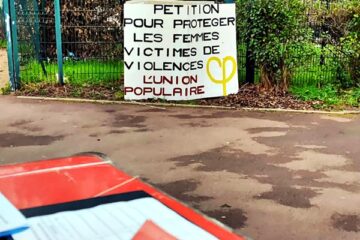 PETITION
POUR PROTEGER
LES FEMMES
VICTIMES DE
VIOLENCES
L'UNION
POPULAIRE